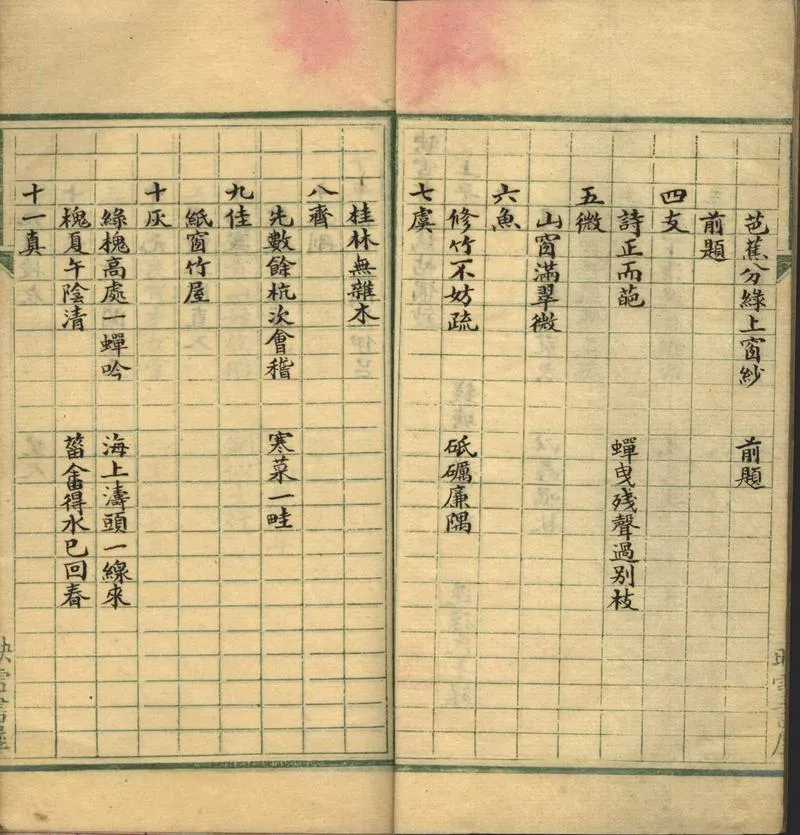 芭蕉分綠上窗紗 前題
前題
四支
詩正而葩 蟬曳殘聲過別枝
五微
山窗滿翠微
六魚
修竹不妨疏 砥礪廉隅
七虞
桂林無雜木
八齊
先數餘杭次會稽 寒菜一畦
九佳
紙窗竹屋
十灰
綠槐高處一蟬吟 海上濤頭一線來
槐夏午陰清 菑畬得水已回春
十一真